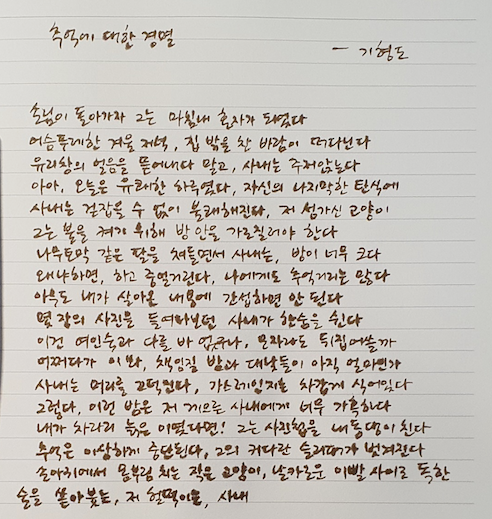 추억에 대한 경멸
- 기형도
손님이 돌아가자 그는 마침내 혼자가 되었다
어슴푸레한 겨울 저녁, 집 밖을 찬 바람이 떠다닌다
유리창의 얼음을 뜯어내다 말고, 사내는 주저앉는다
아아, 오늘은 유쾌한 하루였다, 자신의 나지막한 탄식에
사내는 걷잡을 수 없이 불쾌해진다, 저 성가신 고양이
그는 불을 켜기 위해 방 안을 가로질러야 한다
나무토막 같은 팔을 쳐들면서 사내는, 방이 너무 크다
왜냐하면, 하고 중얼거린다, 나에게도 추억거리는 많다
아무도 내가 살아온 내용에 간섭하면 안 된다
몇 장의 사진을 들여다보던 사내가 한숨을 쉰다
이건 여인숙과 다를 바 없구나, 모자라도 뒤집어쓸까
어쩌다가 이 봐, 책임질 밤과 대낮들이 아직 얼마인가
사내는 머리를 끄덕인다, 가스레인지는 차갑게 식어있다
그렇다, 이런 밤은 저 게으른 사내에게 너무 가혹하다
내가 차라리 늙은이였다면! 그는 사진첩을 내동댕이친다
추억은 이상하게 중단된다, 그의 커다란 슬리퍼가 벗겨진다
손아귀에서 몸부림 치는 작은 고양이, 날카로운 이빨 사이로 독한
술을 쏟아붓는, 저 헐떡이는, 사내